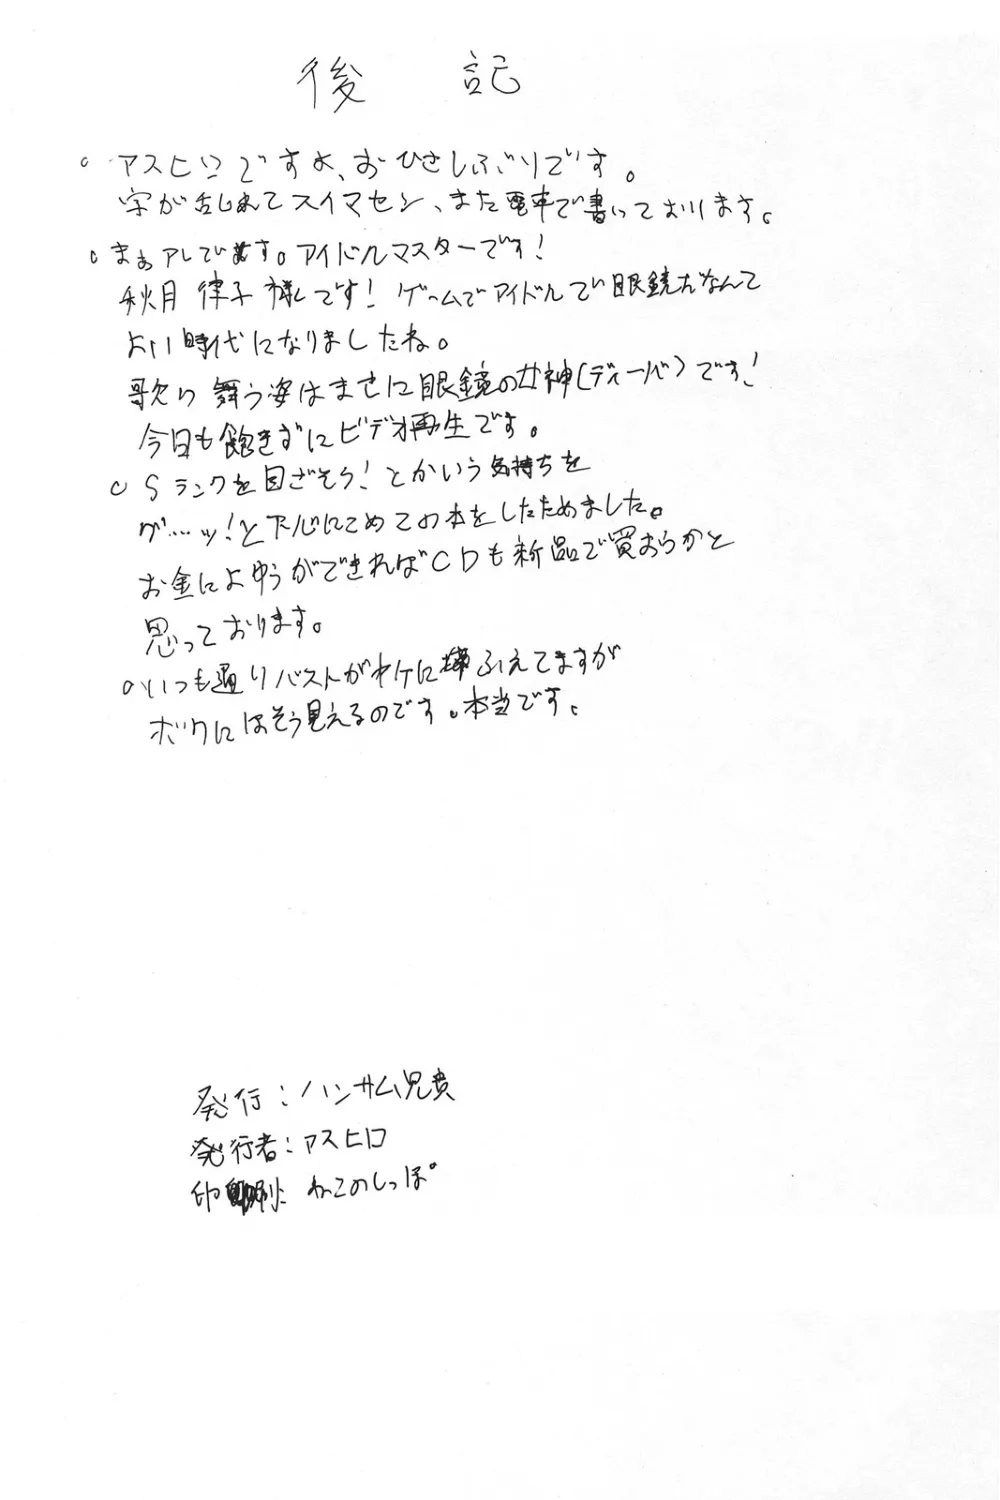 後記
。アスヒロですよ、おひさしぶりです。
字が乱れてスイマセン、また電車で書いております。
。まぁアレです。アイドルマスターです!
秋月律子様です!ゲームでアイドルで眼鏡だなんて
よい時代になりましたね。
歌い舞う姿はまさに眼鏡の女神(ディーバ)です!
今日も飽きずにビデオ再生です。
。Sランクを目ざそう!とかいう気持ちを
グ…ッ!と下心にこめてこの本をしたためました。
お金によゆうができればCDも新品で買おうかと
思っております。
。いつも通りバストがヤケにふえてますが
ボクにはそう見えるのです。本当です。
発行:ハンサム兄貴
発行者:アスヒロ
印刷:ねこのしっぽ